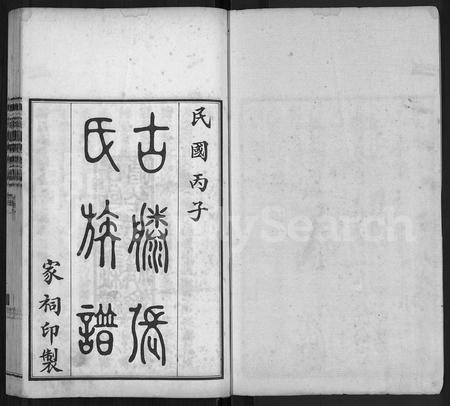 民國丙子
古滕張
氏族譜
家祠印製